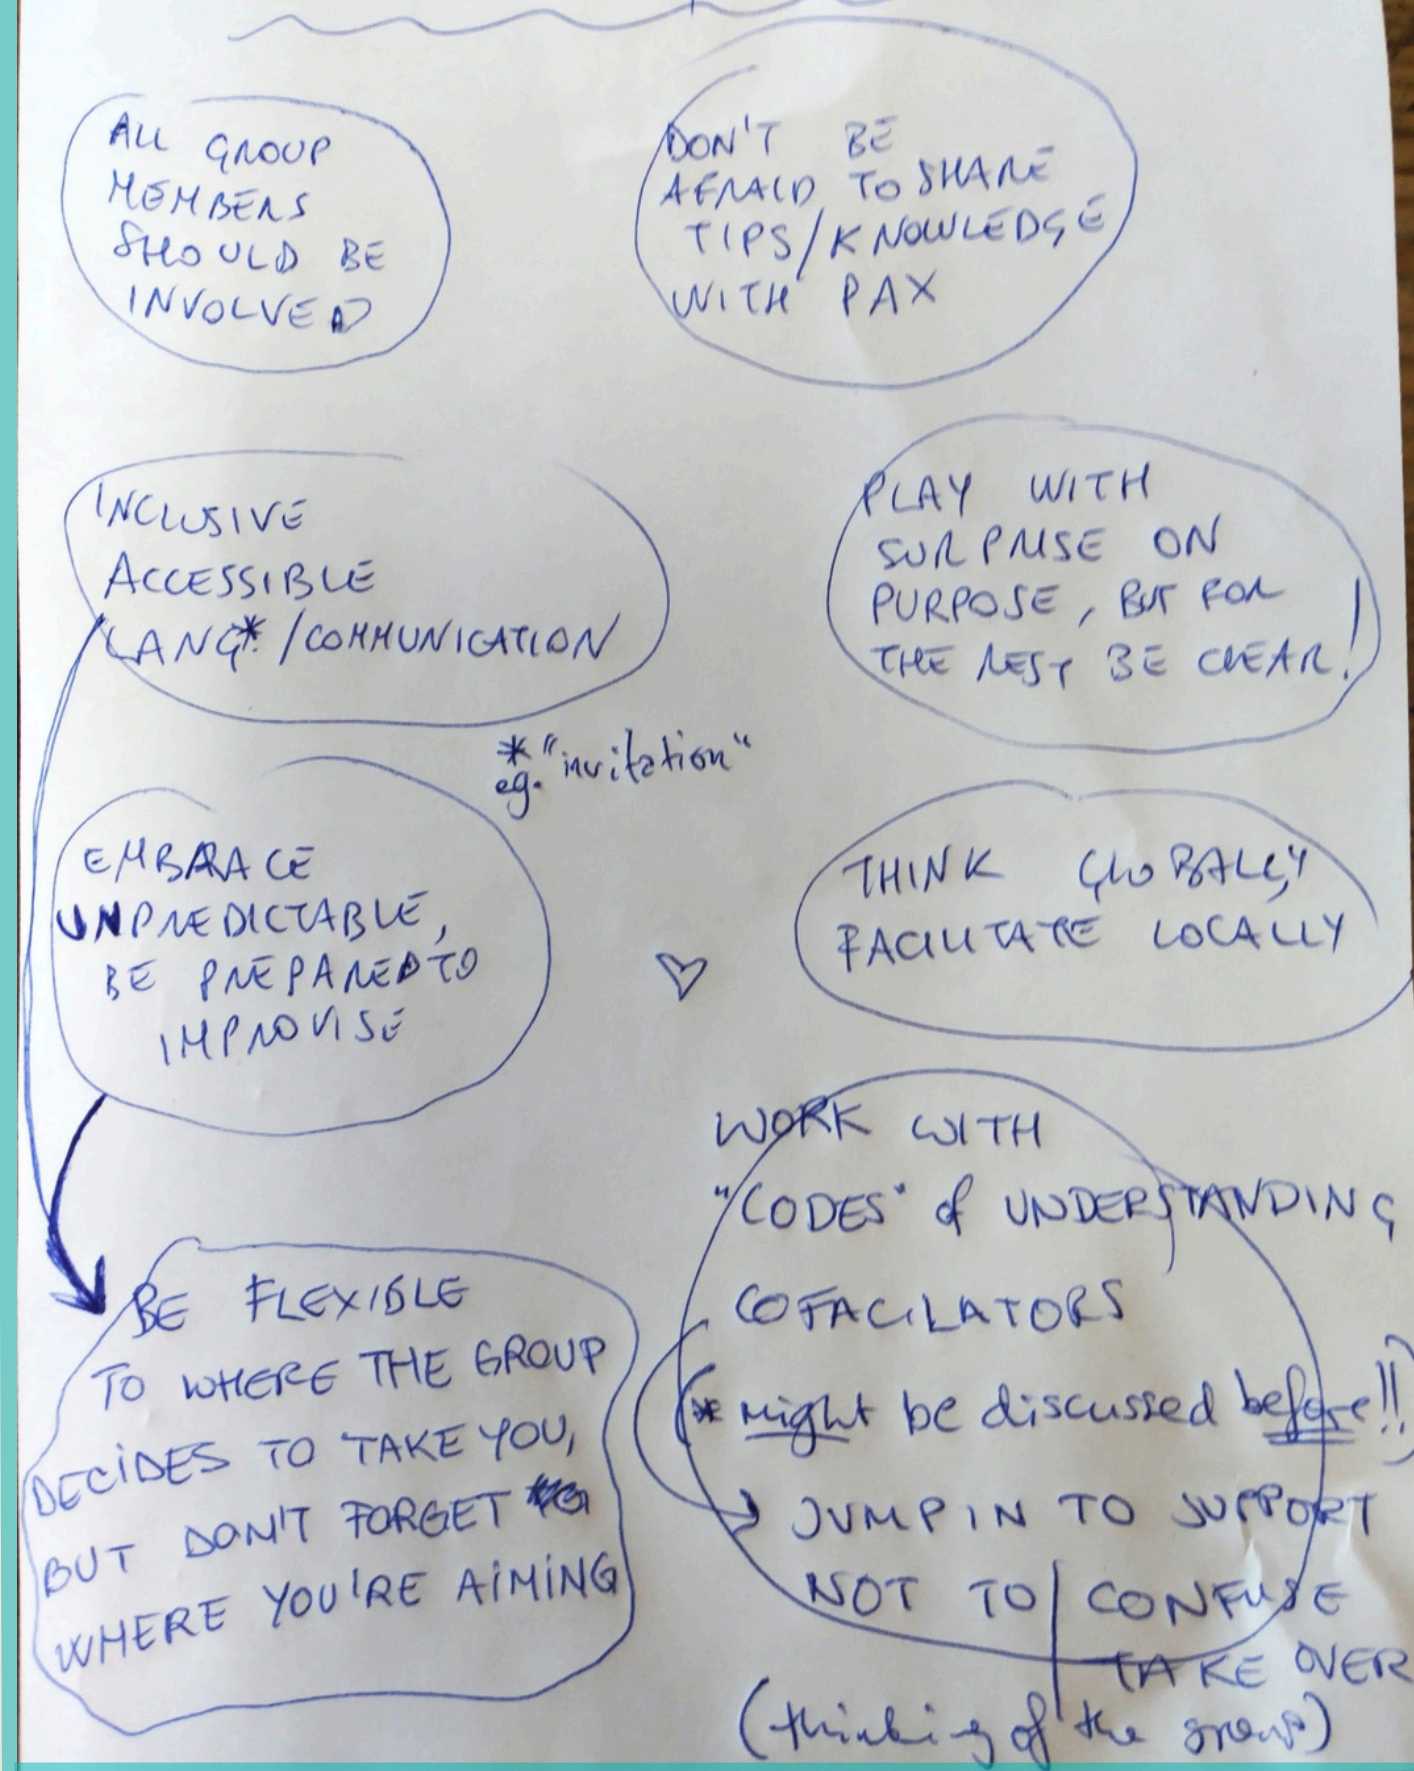 ALL GROUP
MEMBERS
SHOULD BE
INVOLVED
DON'T BE
AFRAID TO SHARE
TIPS/KNOWLEDGE
WITH PAX
INCLUSIVE
ACCESSIBLE
LANG* /COMMUNICATION
* "invitation"
eg.
PLAY WITH
SURPRISE ON
PURPOSE, BUT FOR
THE REST BE CLEAR!
EMBRACE
UNPREDICTABLE,
BE PREPARED TO
IMPROVISE
THINK GLOBALLY
FACILITATE LOCALLY
BE FLEXIBLE
TO WHERE THE GROUP
DECIDES TO TAKE YOU,
BUT DON'T FORGET
WHERE YOU'RE AIMING
WORK WITH
"CODES" of UNDERSTANDING
COFACILATORS
(* might be discussed before!!)
JUMP IN TO SUPPORT
NOT TO | CONFUSE
TAKE OVER
(thinking of the group)